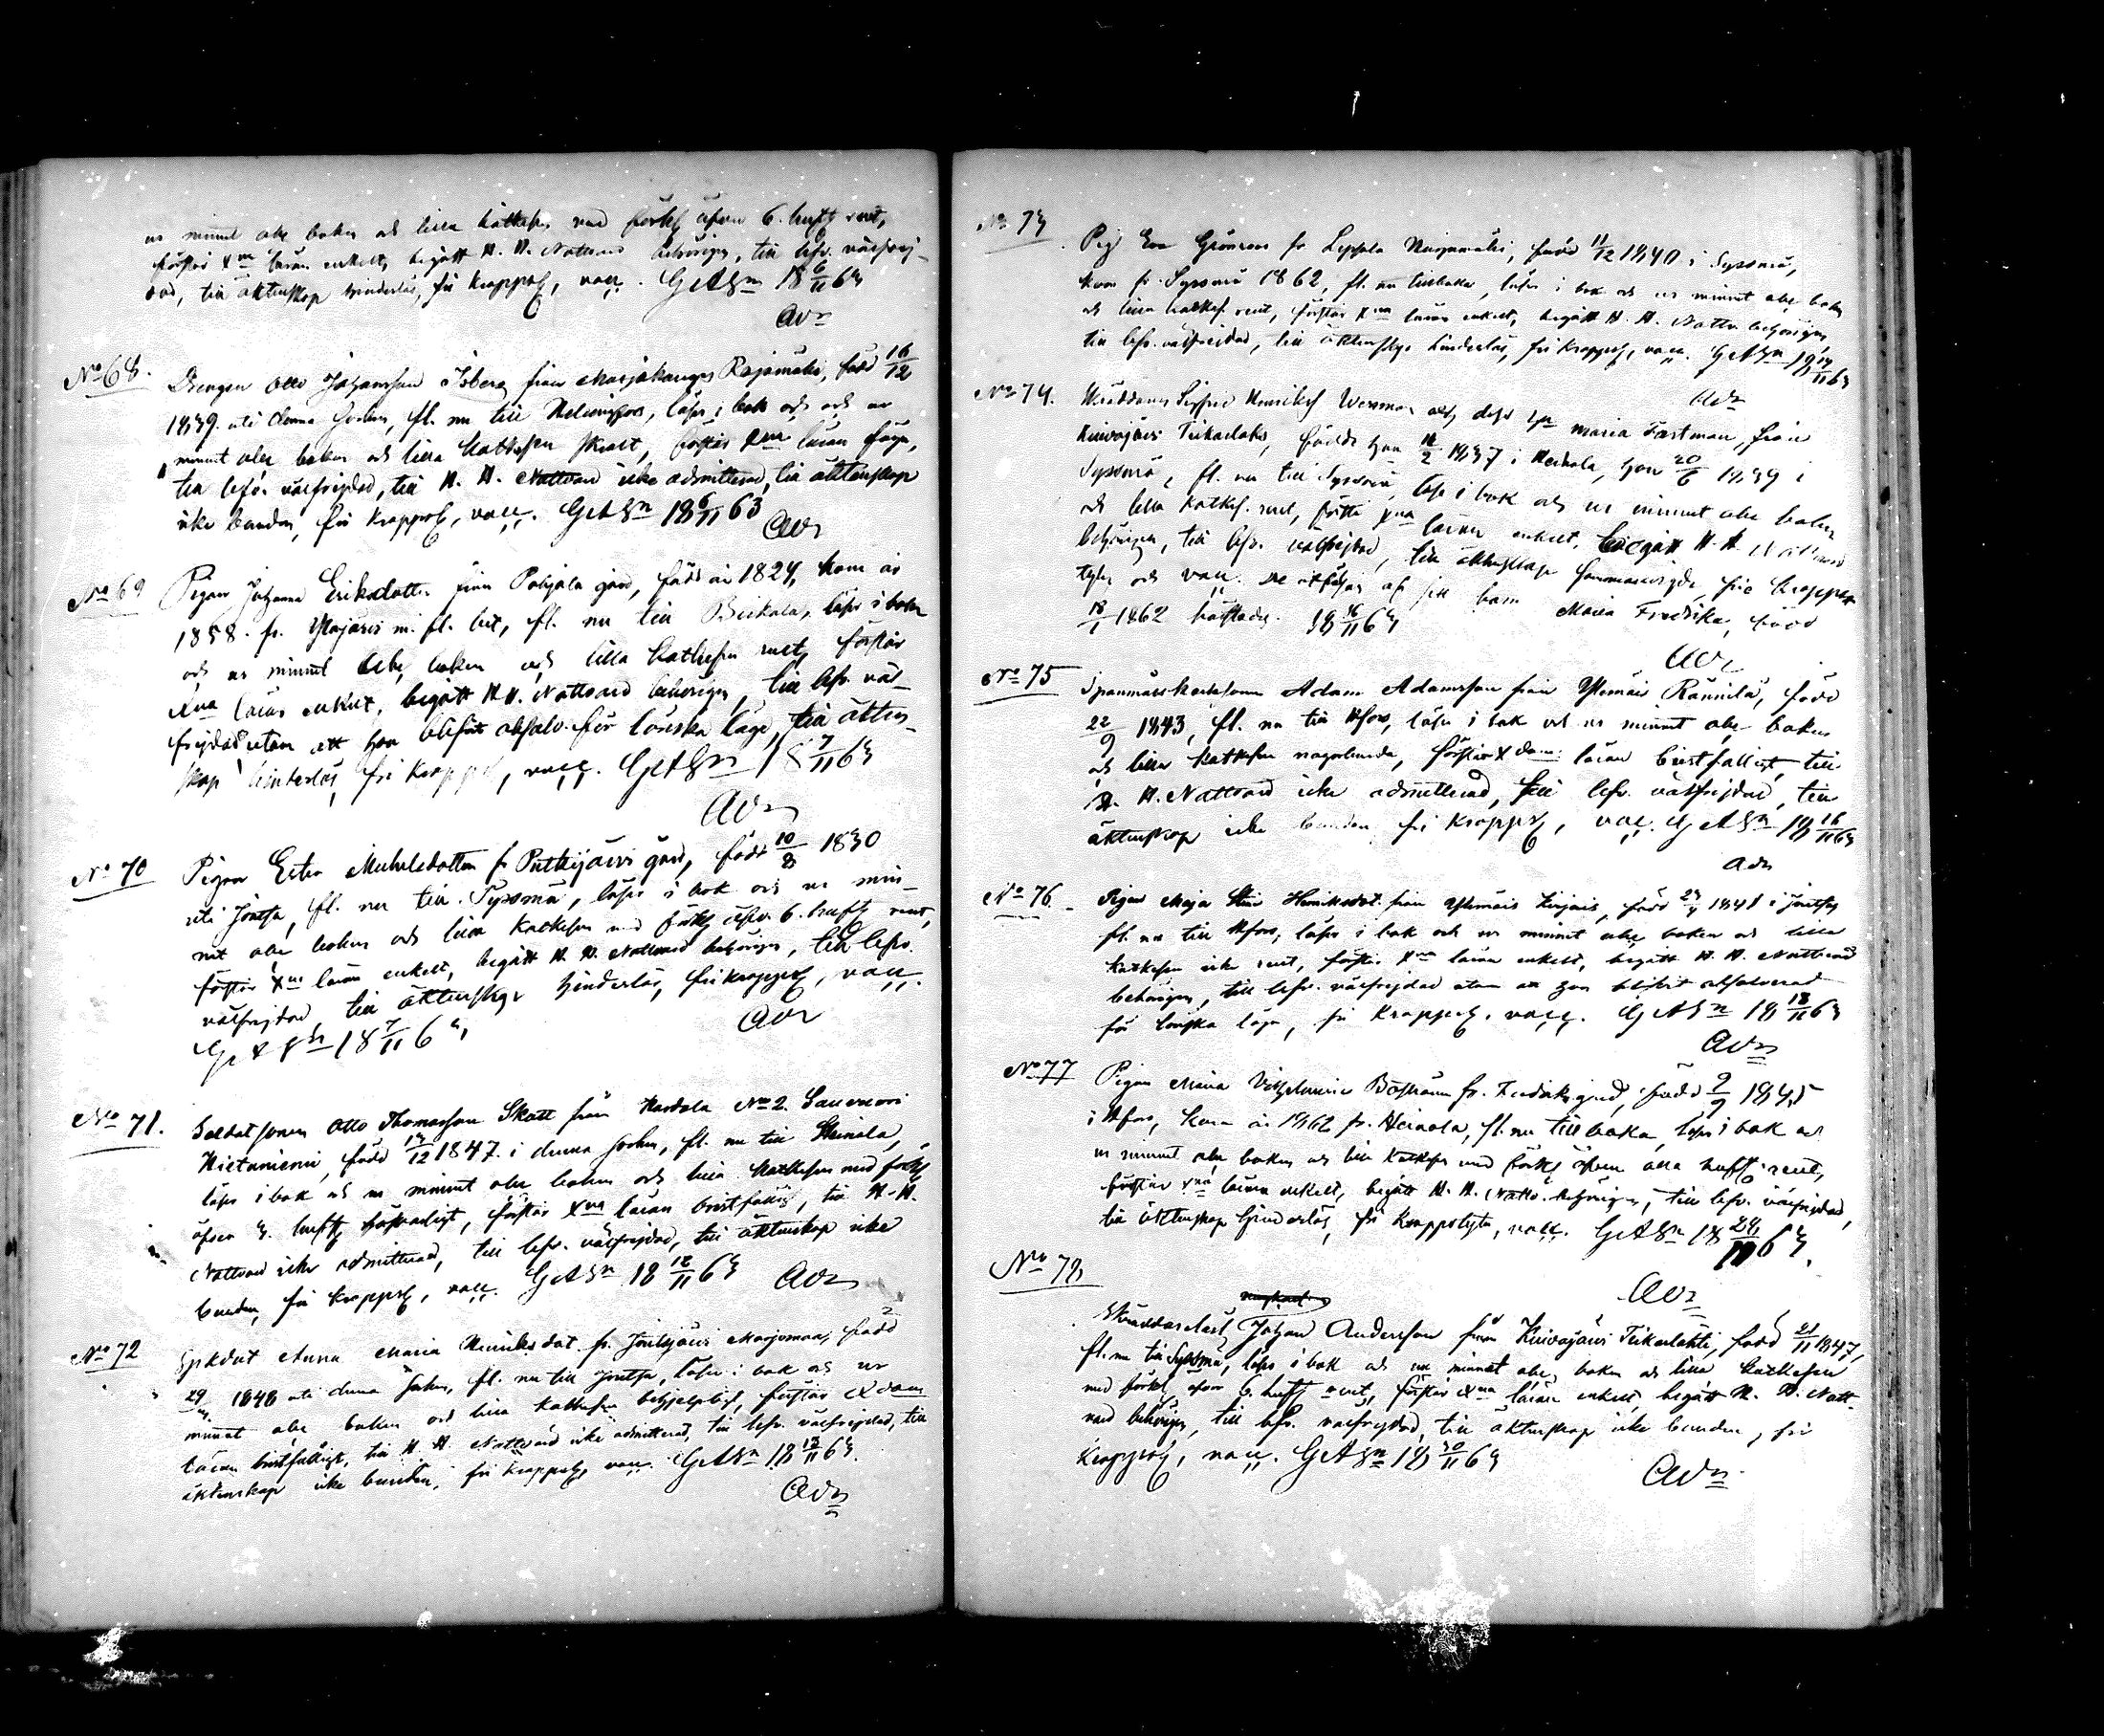 ur minnet abc boken och lilla kattkesen med förkl. öfver 6. hufst. rent,
förstår Xna läran enkelt, begått H. H. Nattvard behörigen, till lefv. välfrej-
dad, till äktenskap hinderlös, fri kroppsl., vacc. GASn 18 6/11 63
Avn
No 68. Drengen Otto Johansson Isberg från Marjokangas Rajamäki, född 16/12
1839. uti denna socken, fl. nu till Helsingfors, läser i bok och ur
minnet abc boken och lilla kattkesen, förstår Xna läran
till lefv. välfrejdad, till H. H. Nattvard icke admitterad, till äktenskap
icke bunden, fri kroppsl., vacc. GASn 18 6/11 63
Avn
No 69 Pigan Johanna Eriksdotter från Pohjala gård, född år 1824, kom år
1858. fr. m. fl. hit, fl. nu till läser i boken
och ur minnet abc boken och lilla kattkesen rent, förstår
Xna läran enkelt, begått H. H. Nattvard behörigen, till lefv. väl-
frejdad utom att hon blifvit absolv. för lönska läge, till äkten-
skap hinderlös, fri kroppsl., vacc. GASn 18 7/11 63
Avn
No 70 Pigan Ester Michelsdotter fr Putkijärvi gård, född 10/8 1830
uti Joutsa, fl. nu till Sysmä, läser i bok och ur min-
net abc boken och lilla kattkesen med förkl. öfver 6. hufst. rent,
förstår Xna läran enkelt, begått H. H. Nattvard behörigen, till lefv.
välfrejdad, till äktenskap hinderlös, fri kroppsl., vacc.
GASn 18 7/11 63
Avn
No 71. Soldatsonen Otto Thomasson Skatt från Hardola No 2.
Hietaniemi, född 13/12 1847. i denna socken, fl. nu till Heinola,
läser i bok och ur minnet abc boken och lilla kattkesen med förkl.
öfver 3. hufst. försvarligt, förstår Xna läran bristfälligt, till H. H.
Nattvard icke admitterad, till lefv. välfrejdad, till äktenskap icke
bunden, fri kroppsl., vacc. GASn 18 12/11 63
Avn
No 72 Anna Maria Henriksdot. fr. född
29/3 1848 uti denna socken, fl. nu till Joutsa, läser i bok och ur
minnet abc boken och lilla kattkesen behjelpligt, förstår Xdom
läran bristfälligt, till H. H. Nattvard icke admitterad, till lefv. välfrejdad, till
äktenskap icke bunden, fri kroppsl., vacc. GASn 18 13/11 63.
Avn
No 73 Pig. Eva Grönroos fr Leppälä född 11/12 1840 i Sysmä,
kom fr. Sysmä 1862, fl. nu tillbaka, läser i bok och ur minnet abc boken
och lilla kattkes. rent, förstår Xna läran enkelt, begått H. H. Nattv. behörigen,
till lefv. välfrejdad, till äktenskap hinderlös, fri kroppsl., vacc. GASn 18 14/11 63
Avn
No 74. Sigfrid Henriksf. och dess h:u Maria Fastman, från
Kuivajärvi Tiikerlahti, född han 12/2 1837 i Heinola, hon 20/6 1839 i
Sysmä, fl. nu till Sysmä, läsa i bok och ur minnet abc boken
och lilla kattkes. rent, förstå Xna läran enkelt, begått H. H. Nattvard
behörigen, till lefv. välfrejdad, till äktenskap sammanvigde, fria kropps-
lytes och vacc. De åtföljas af sitt barn Maria Fredrika, född
18/1 1862 18 16/11 63
Avn
No 75 Spannmålskarlsonen Adam Adamsson från Ylemäis Rännilä, född
22/9 1843, fl. nu till Hfors, läser i bok och ur minnet abc boken
och lilla kattkesen någorlunda, förstår Xdom: läran bristfälligt, till
H. H. Nattvard icke admitterad, till lefv. välfrejdad, till
äktenskap icke bunden, fri kroppsl., vacc. GASn 18 16/11 63
Avn
No 76 Pigan Maja Stina Henriksdot. från Ylemäis född 23/4 1841 i Joutsa,
fl. nu till Hfors, läser i bok och ur minnet abc boken och lilla
kattkesen icke rent, förstår Xna läran enkelt, begått H. H. Nattvard
behörigen, till lefv. välfrejdad utom att hon blifvit absolverad
för lönska läge, fri kroppsl., vacc. GASn 18 18/11 63
Avn
No 77 Pigan Maria Vilhelmina Boström fr. Fredriksgård, född 9/9 1845
i Hfors, kom år 1862 fr. Heinola, fl. nu tillbaka, läser i bok och
ur minnet abc boken och lilla kattkesen med förkl. öfver alla hufst. rent,
förstår Xna läran enkelt, begått H. H. Nattv. behörigen, till lefv. välfrejdad,
till äktenskap hinderlös, fri kroppslyte, vacc. GASn 18 28/11 63.
Avn
No 78 Johan Andersson från Kuivajärvi Tiikerlahti, född 21/11 1847,
fl. nu till Sysmä, läser i bok och ur minnet abc boken och lilla kattkesen
med förkl. öfver 6. hufst. rent, förstår Xna läran enkelt, begått H. H. Natt-
vard behörigen, till lefv. välfrejdad, till äktenskap icke bunden, fri
kroppsl., vacc. GASn 18 30/11 63
Avn